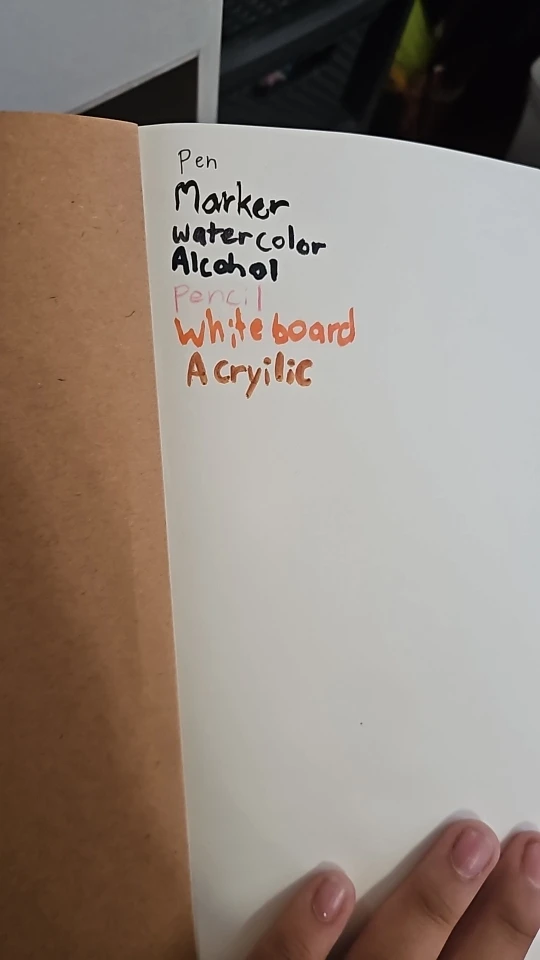 Pen
Marker
watercolor
Alcohol
Pencil
whiteboard
Acryilic